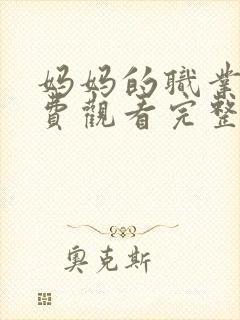 妈妈的職業
費觀看完整
奥克斯